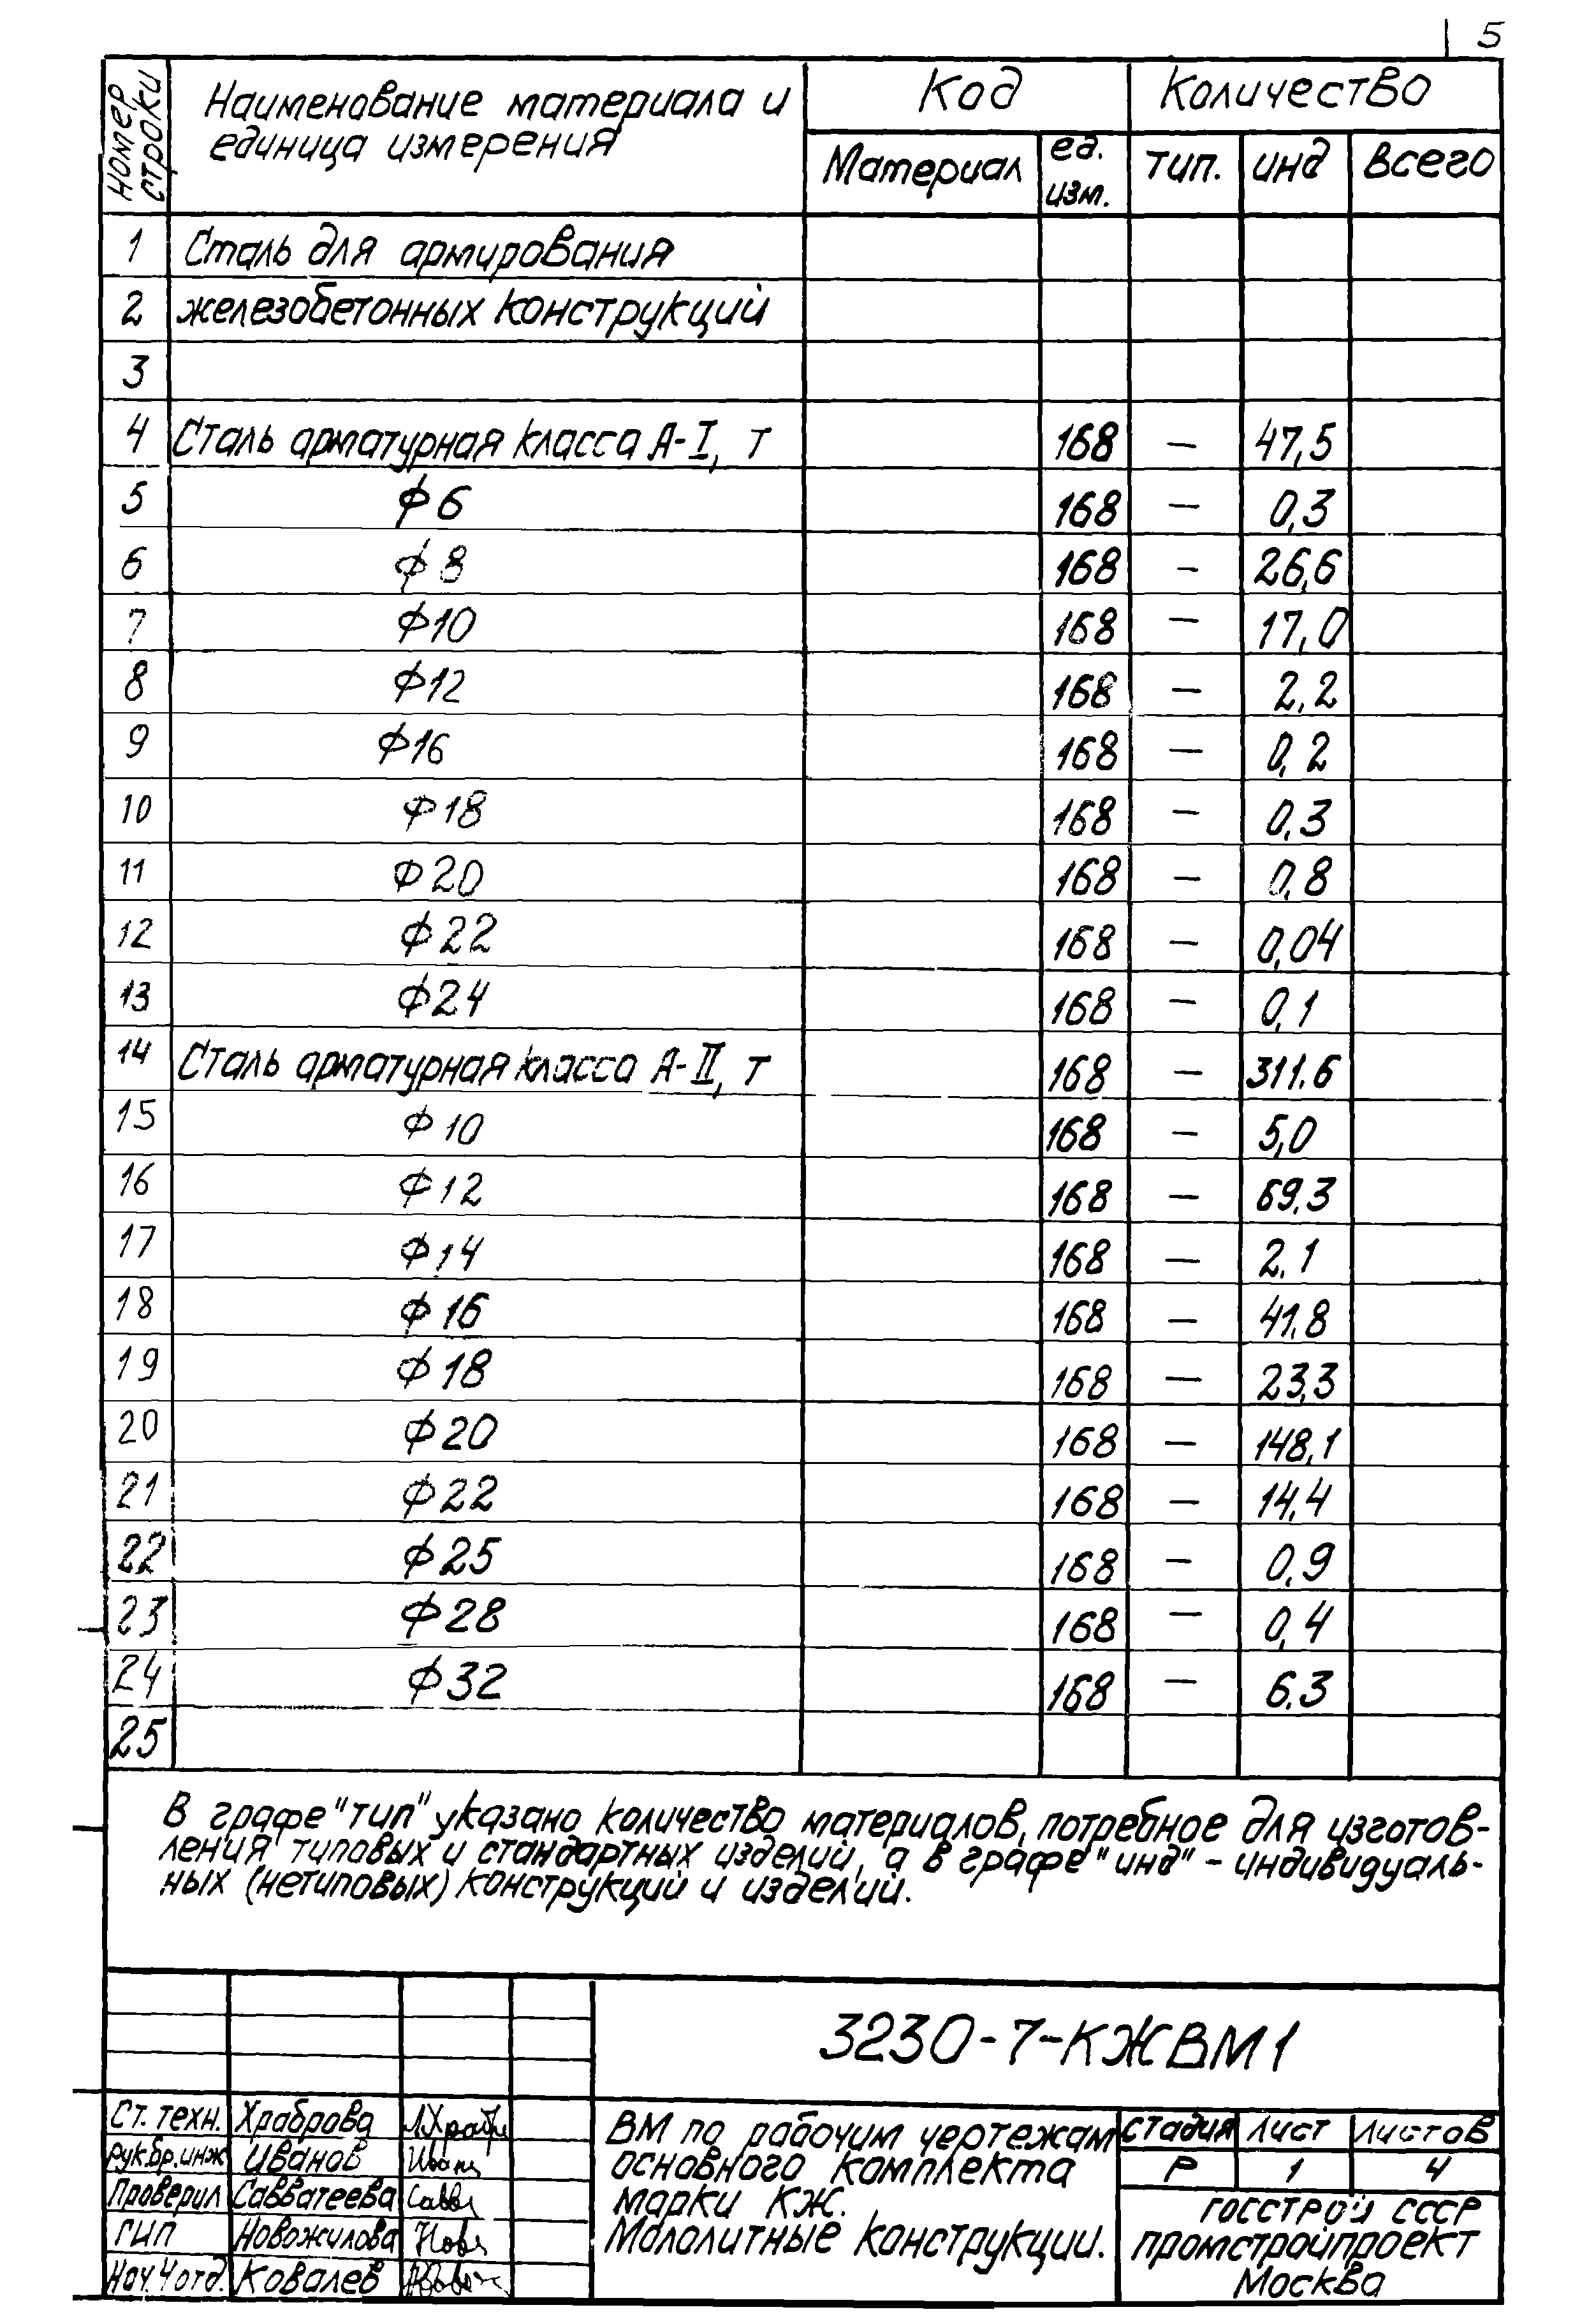 5
Номер строки
Наименование материала и
единица измерения
Код
Количество
Материал
ед.
изм.
тип.
инд
всего
1 Сталь для армирования
2 железобетонных конструкций
3
4 Сталь арматурная класса А-I, т 168 — 47,5
5 Ф6 168 — 0,3
6 Ф8 168 — 26,6
7 Ф10 168 — 17,0
8 Ф12 168 — 2,2
9 Ф16 168 — 0,2
10 Ф18 168 — 0,3
11 Ф20 168 — 0,8
12 Ф22 168 — 0,04
13 Ф24 168 — 0,1
14 Сталь арматурная класса А-II, т 168 — 311.6
15 Ф10 168 — 5,0
16 Ф12 168 — 69.3
17 Ф14 168 — 2.1
18 Ф16 168 — 41.8
19 Ф18 168 — 23,3
20 Ф20 168 — 148,1
21 Ф22 168 — 14,4
22 Ф25 168 — 0,9
23 Ф28 168 — 0,4
24 Ф32 168 — 6.3
25
В графе "тип" указано количество материалов, потребное для изготов-
ления типовых и стандартных изделий, а в графе "инд" - индивидуаль-
ных (нетиповых) конструкций и изделий.
3230-7-КЖВМ1
Ст. техн. Храброва
Рук.бр.инж Иванов
Проверил Савватеева
ГИП Новожилова
Нач.Чотд. Ковалев
ВМ по рабочим чертежам
основного комплекта
марки КЖ.
Мололитные конструкции.
стадия лист листов
Р 1 4
Госстрой СССР
промстройпроект
Москва